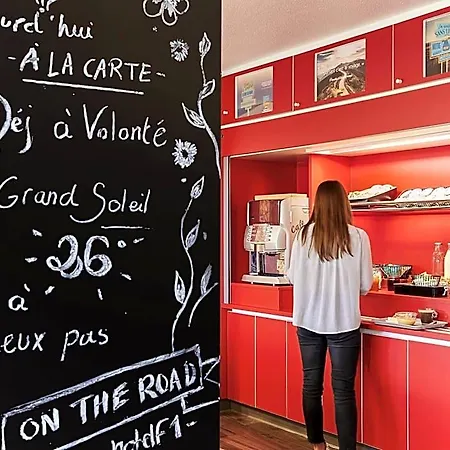 urd'hui
- À LA CARTE -
Déj à Volonté
Grand Soleil
26
à
eux pas
ON THE ROAD
hotdF1-